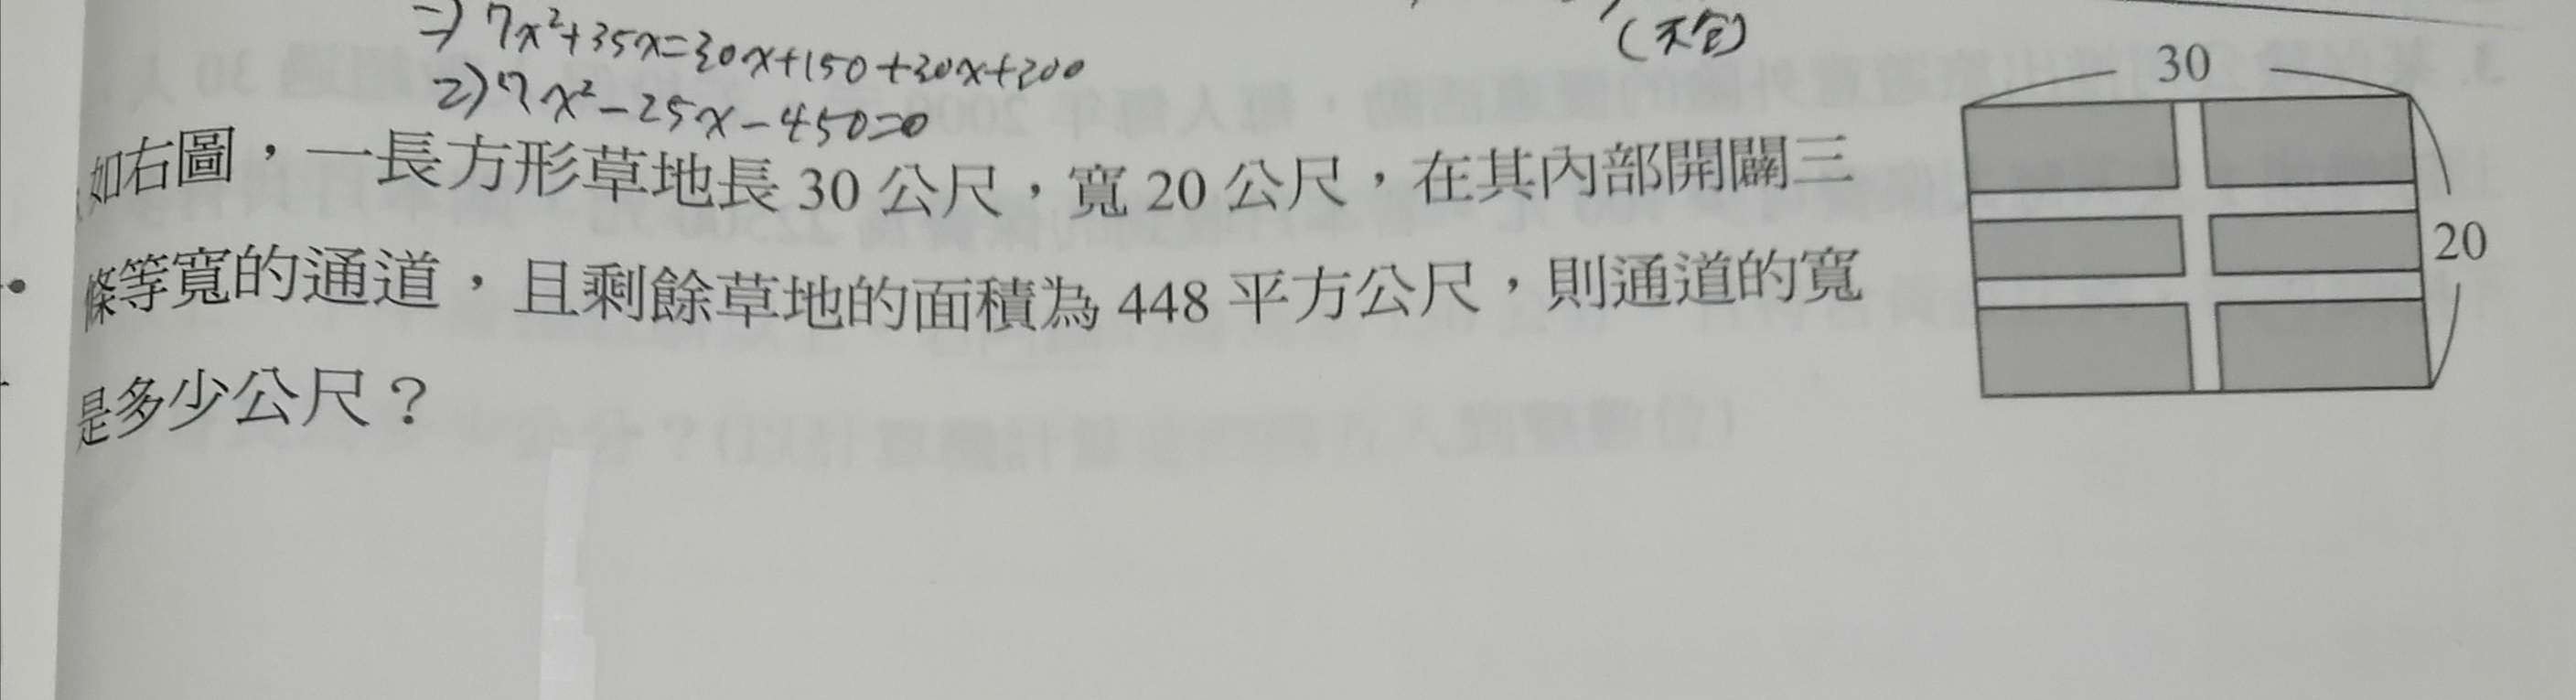 => 7x²+35x=30x+150+30x+300
=> 7x²-25x-450=0
(不合)
如右圖，一長方形草地長 30 公尺，寬 20 公尺，在其內部開闢三
條等寬的通道，且剩餘草地的面積為 448 平方公尺，則通道的寬
是多少公尺？
30
20